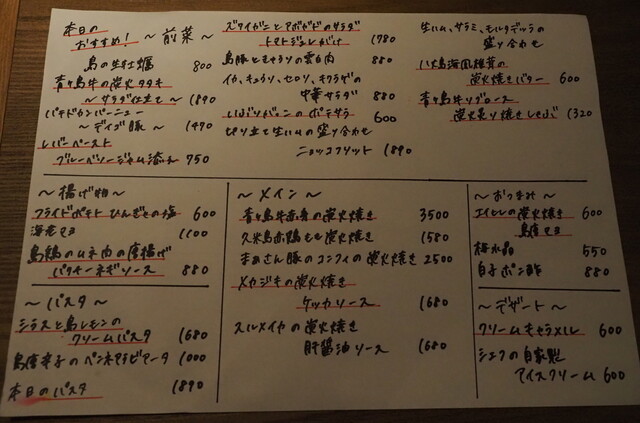 本日の
おすすめ!
～前菜～
島の生牡蠣 800
青ヶ島牛の炭火タタキ
～サラダ仕立て～ 1890
パテドカンパーニュー
～デイゴ豚～ 1470
レバーペースト
ブルーベリージャム添え 750
ズワイガニとアボガドのサラダ
トマトジュレがけ 1780
島豚ときゅうりの雲白肉 880
イカ、キュウリ、セロリ、キクラゲの
中華サラダ 880
いぶりがっこのポテサラ 600
切り立て生ハムの盛り合わせ
ニョッコフリット 1890
生ハム、サラミ、モルタデッラの
盛り合わせ
八丈島海風椎茸の
炭火焼きバター 600
青ヶ島牛リブロース
炭火炙り焼きしゃぶ 1320
～揚げ物～
フライドポテト ひんぎゃの塩 600
海老マヨ 1100
島鶏のムネ肉の唐揚げ
パクチーネギソース 880
～パスタ～
シラスと島レモンの
クリームパスタ 1680
島唐辛子のペンネアラビアータ 1000
本日のパスタ 1890
～メイン～
青ヶ島牛赤身の炭火焼き 3500
久米島赤鶏もも炭火焼き 1580
まあさん豚のコンフィの炭火焼き 2500
メカジキの炭火焼き
ケッカソース 1680
スルメイカの炭火焼き
肝醤油ソース 1680
～おつまみ～
エイヒレの炭火焼き 600
島唐マヨ
梅水晶 550
白子ポン酢 880
～デザート～
クリームキャラメル 600
シェフの自家製
アイスクリーム 600